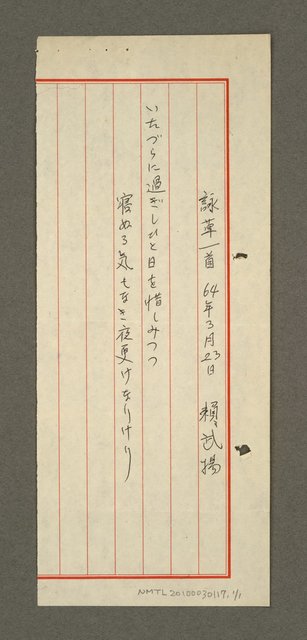 詠草一首 64年3月23日 頼武揚
いたづらに過ぎしひと日を惜しみつつ
寝ぬる気もなき夜更けなりけり
NMTL20100030117, 1/1